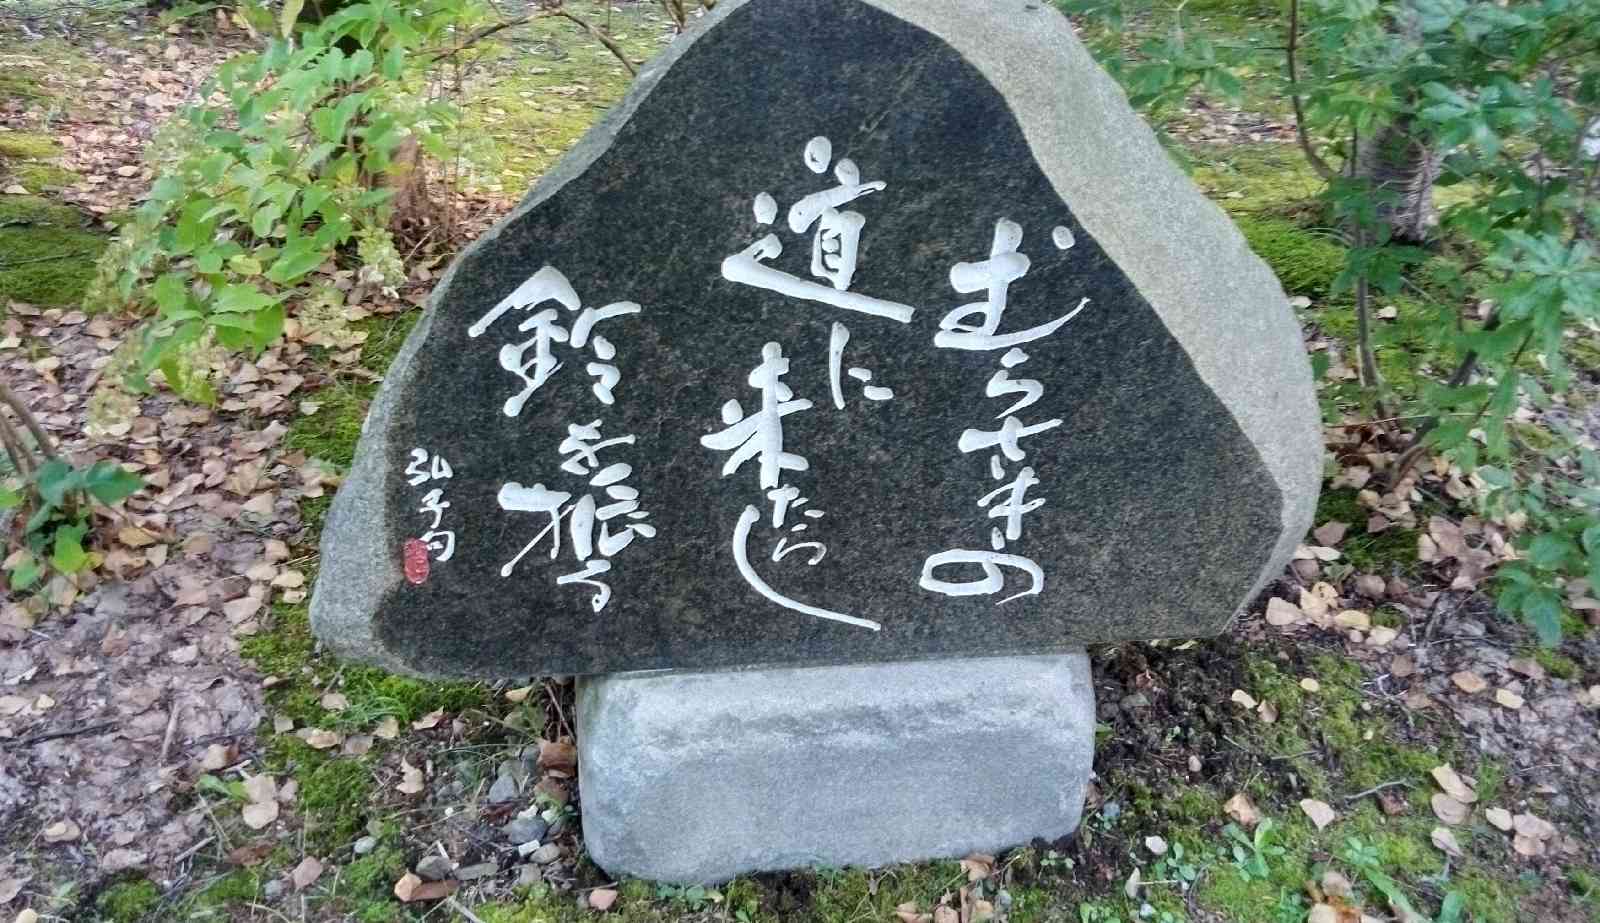 むらさきの
道に来たらし
鈴を振る
弘子句